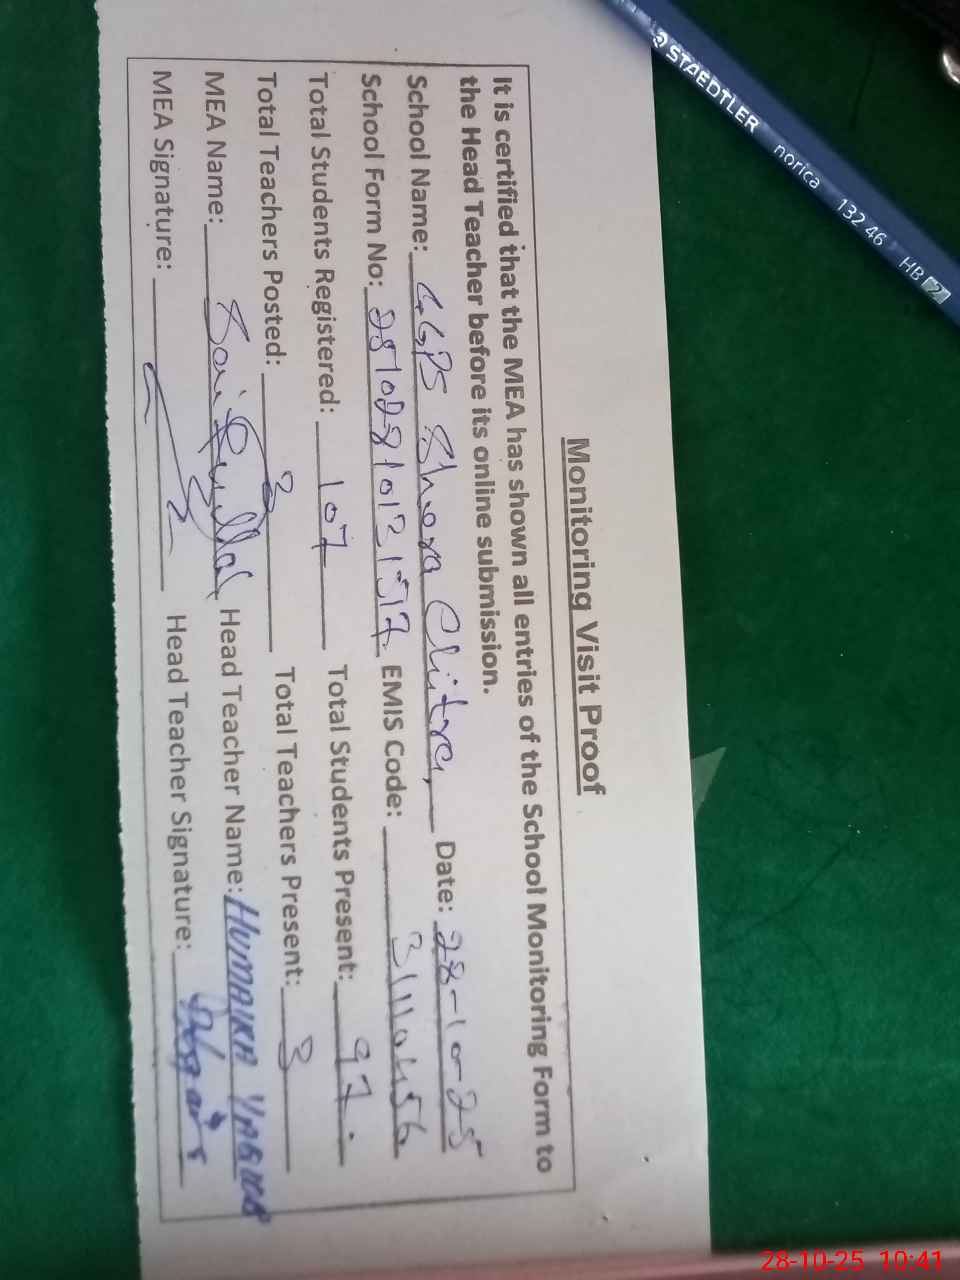 Monitoring Visit Proof
It is certified that the MEA has shown all entries of the School Monitoring Form to
the Head Teacher before its online submission.
School Name: GGPS Shera Date: 28-10-25
School Form No: EMIS Code:
Total Students Registered: 107 Total Students Present: 97.
Total Teachers Posted: 3 Total Teachers Present: 3
MEA Name: Saifullah Head Teacher Name: HUMAIRA YAQUB
MEA Signature: Head Teacher Signature:
STAEDTLER norica 132 46 HB 2
28-10-25 10:41